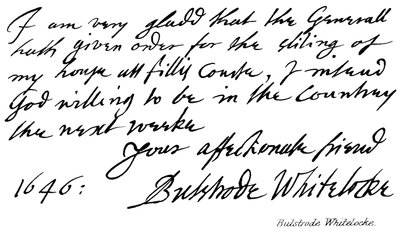 I am very gladd that the Generall
hath given order for the sliting of
my house att fillis Courte, I intend
God willing to be in the Countrey
the next weeke
Your affectionate friend
1646: Bulstrode Whitelocke
Bulstrode Whitelocke.